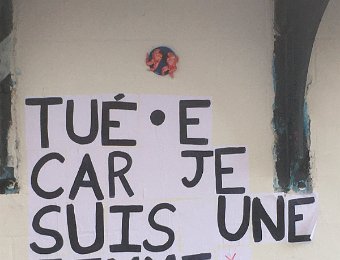 TUÉ•E
CAR JE
SUIS UNE